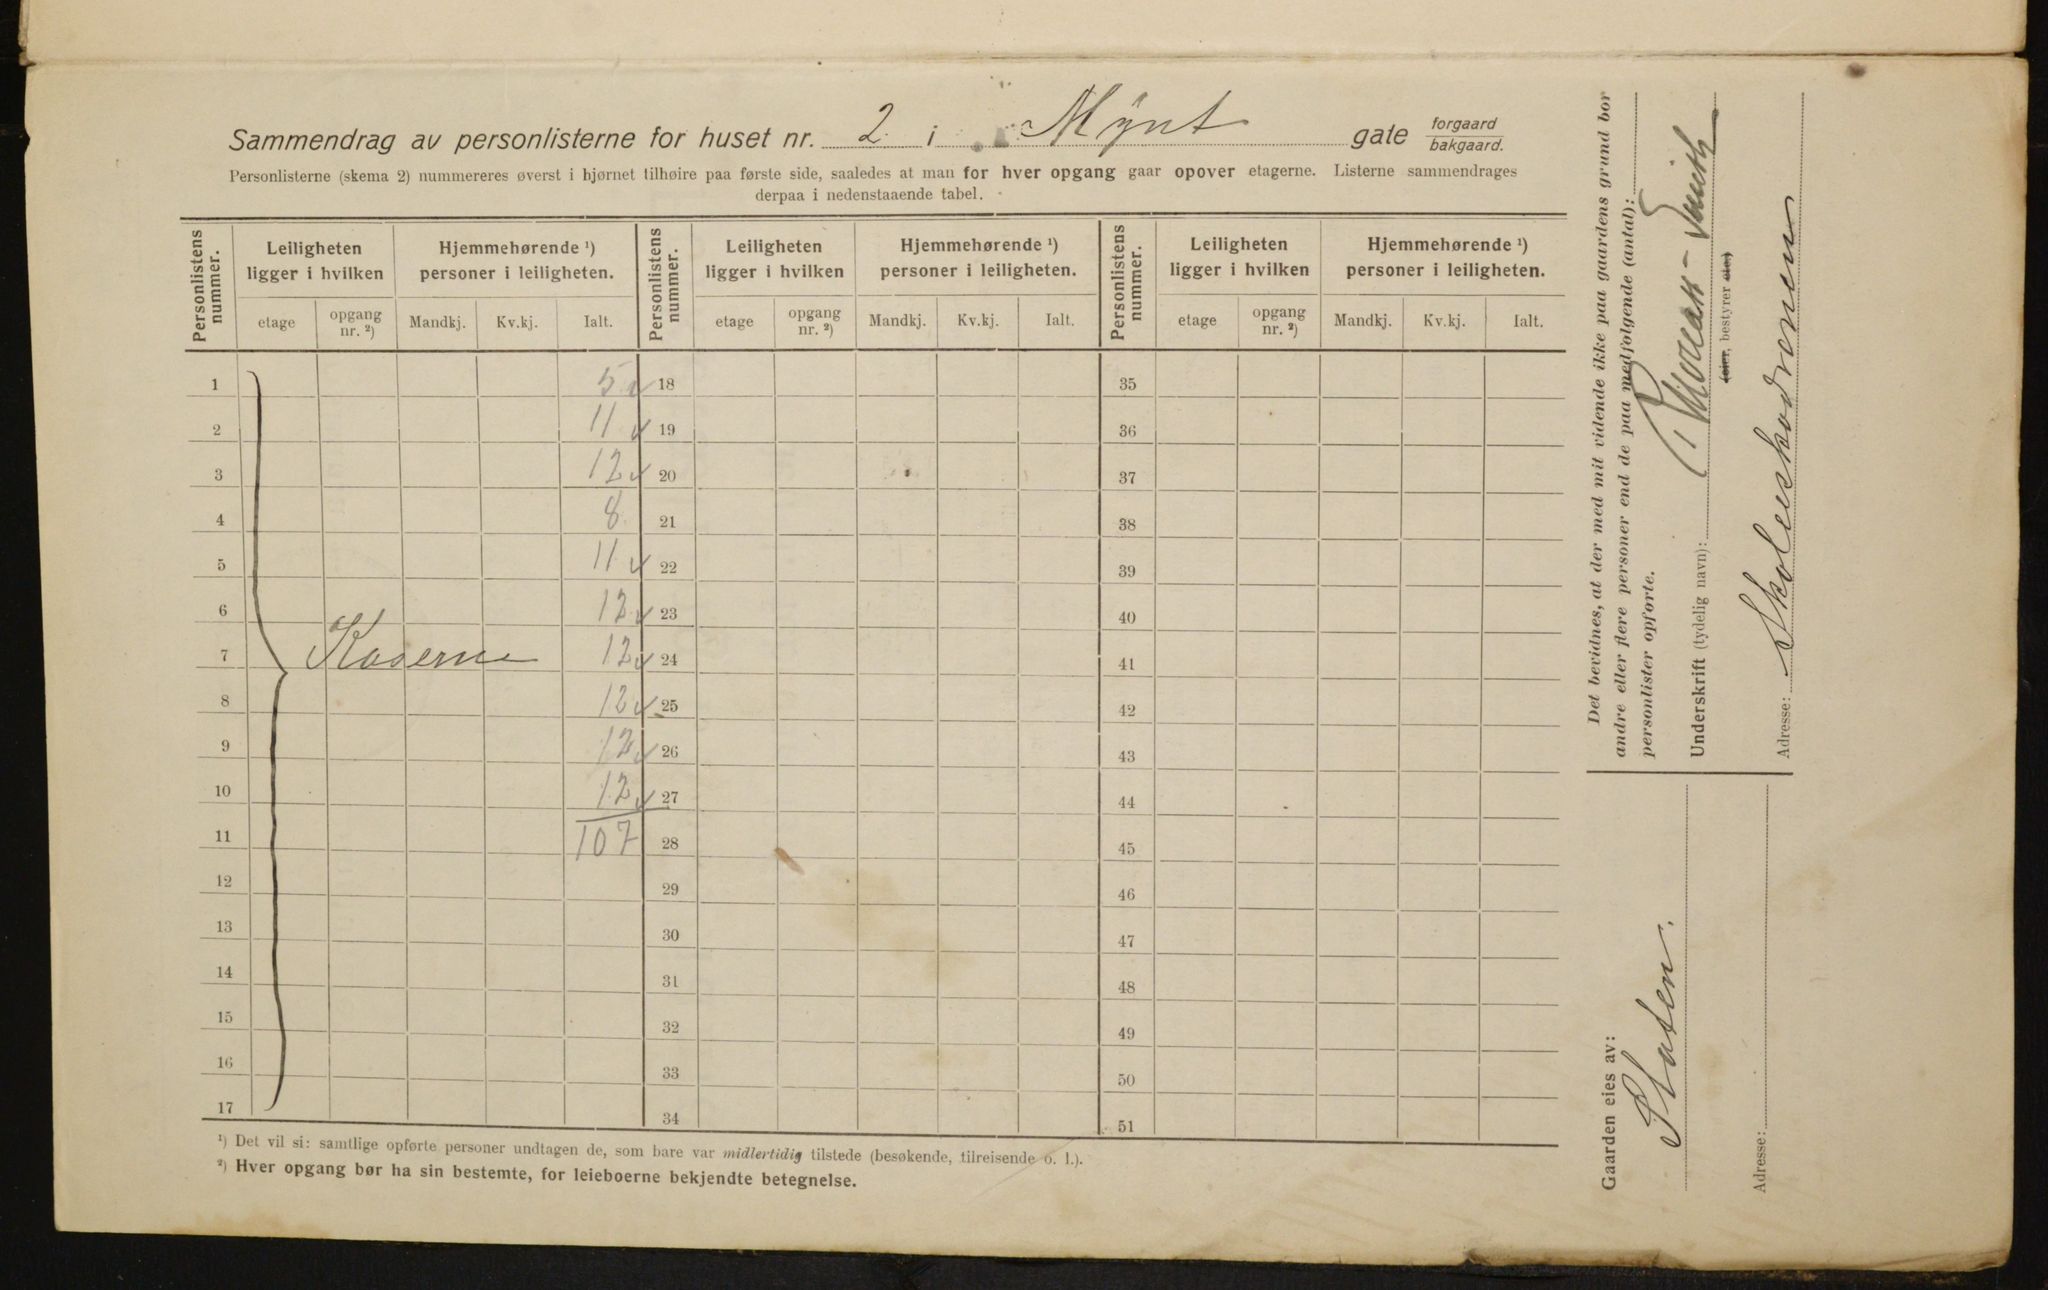 Sammendrag av personlisterne for huset nr. 2 i Mynt gate forgaard bakgaard.
Personlisterne (skema 2) nummereres øverst i hjørnet tilhøire paa første side, saaledes at man for hver opgang gaar opover etagerne. Listerne sammendrages
derpaa i nedenstaaende tabel.
Personlistens nummer. Leiligheten ligger i hvilken Hjemmehørende ¹) personer i leiligheten. Personlistens nummer. Leiligheten ligger i hvilken Hjemmehørende ¹) personer i leiligheten. Personlistens nummer. Leiligheten ligger i hvilken Hjemmehørende ¹) personer i leiligheten.
etage opgang nr. ²) Mandkj. Kv.kj. Ialt. etage opgang nr. ²) Mandkj. Kv.kj. Ialt. etage opgang nr. ²) Mandkj. Kv.kj. Ialt.
1 5 18 35
2 11 19 36
3 12 20 37
4 8 21 38
5 11 22 39
6 12 23 40
7 Kaserne 12 24 41
8 12 25 42
9 12 26 43
10 12 27 44
11 107 28 45
12 29 46
13 30 47
14 31 48
15 32 49
16 33 50
17 34 51
¹) Det vil si: samtlige opførte personer undtagen de, som bare var midlertidig tilstede (besøkende, tilreisende o. l.).
²) Hver opgang bør ha sin bestemte, for leieboerne bekjendte betegnelse.
Det bevidnes, at der med mit vidende ikke paa gaardens grund bor
andre eller flere personer end de paa medfølgende (antal):
personlister opførte.
Underskrift (tydelig navn):
(eier, bestyrer etc.)
Adresse:
Gaarden eies av:
Staten.
Adresse: